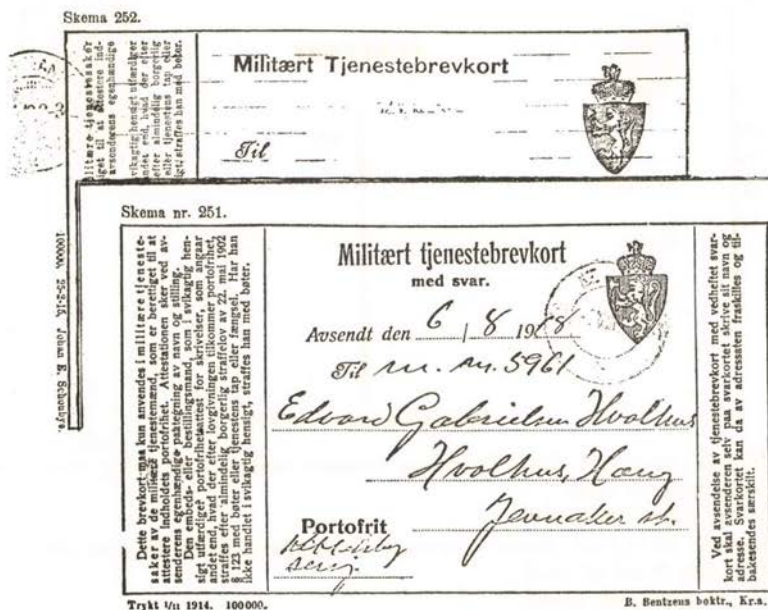 Skema 252.
Militært Tjenestebrevkort
Til
ilitære tjenestesaker
iget til at attestere ind-
avsenderens egenhændige
svikagtig hensigt utfærdiger
andet end, hvad der efter
efter almindelig borgerlig
eller tjenestens tap eller
sigt, straffes han med bøter.
100000. 25-2-15. Johan E. Schonbye.
Skema nr. 251.
Dette brevkort maa kun anvendes i militære tjeneste-
saker av de militære tjenestemænd, som er berettiget til at
attestere indholdets portofrihet. Attestationen sker ved av-
senderens egenhændige paategning av navn og stilling.
Den embeds- eller bestillingsmand, som i svikagtig hen-
sigt utfærdiger portofrihetsattest for skrivelser, som angaar
andet end, hvad der efter lovgivningen tilkommer portofrihet,
straffes efter almindelig borgerlig straffelov av 22. mai 1902
§ 123 med bøter eller tjenestens tap eller fængsel. Har han
ikke handlet i svikagtig hensigt, straffes han med bøter.
Militært tjenestebrevkort
med svar.
Avsendt den 6 / 8 1918
Til m. m. 5961
Edvard Gabrielsen Hvolhus
Hvolhus, Haug
Jevnaker st.
Portofrit
serg.
Ved avsendelse av tjenestebrevkort med vedheftet svar-
kort skal avsenderen selv paa svarkortet skrive sit navn og
adresse. Svarkortet kan da av adressaten fraskilles og til-
bakesendes særskilt.
Trykt 1/11 1914. 100000.
B. Bentzens boktr., Kr.a.